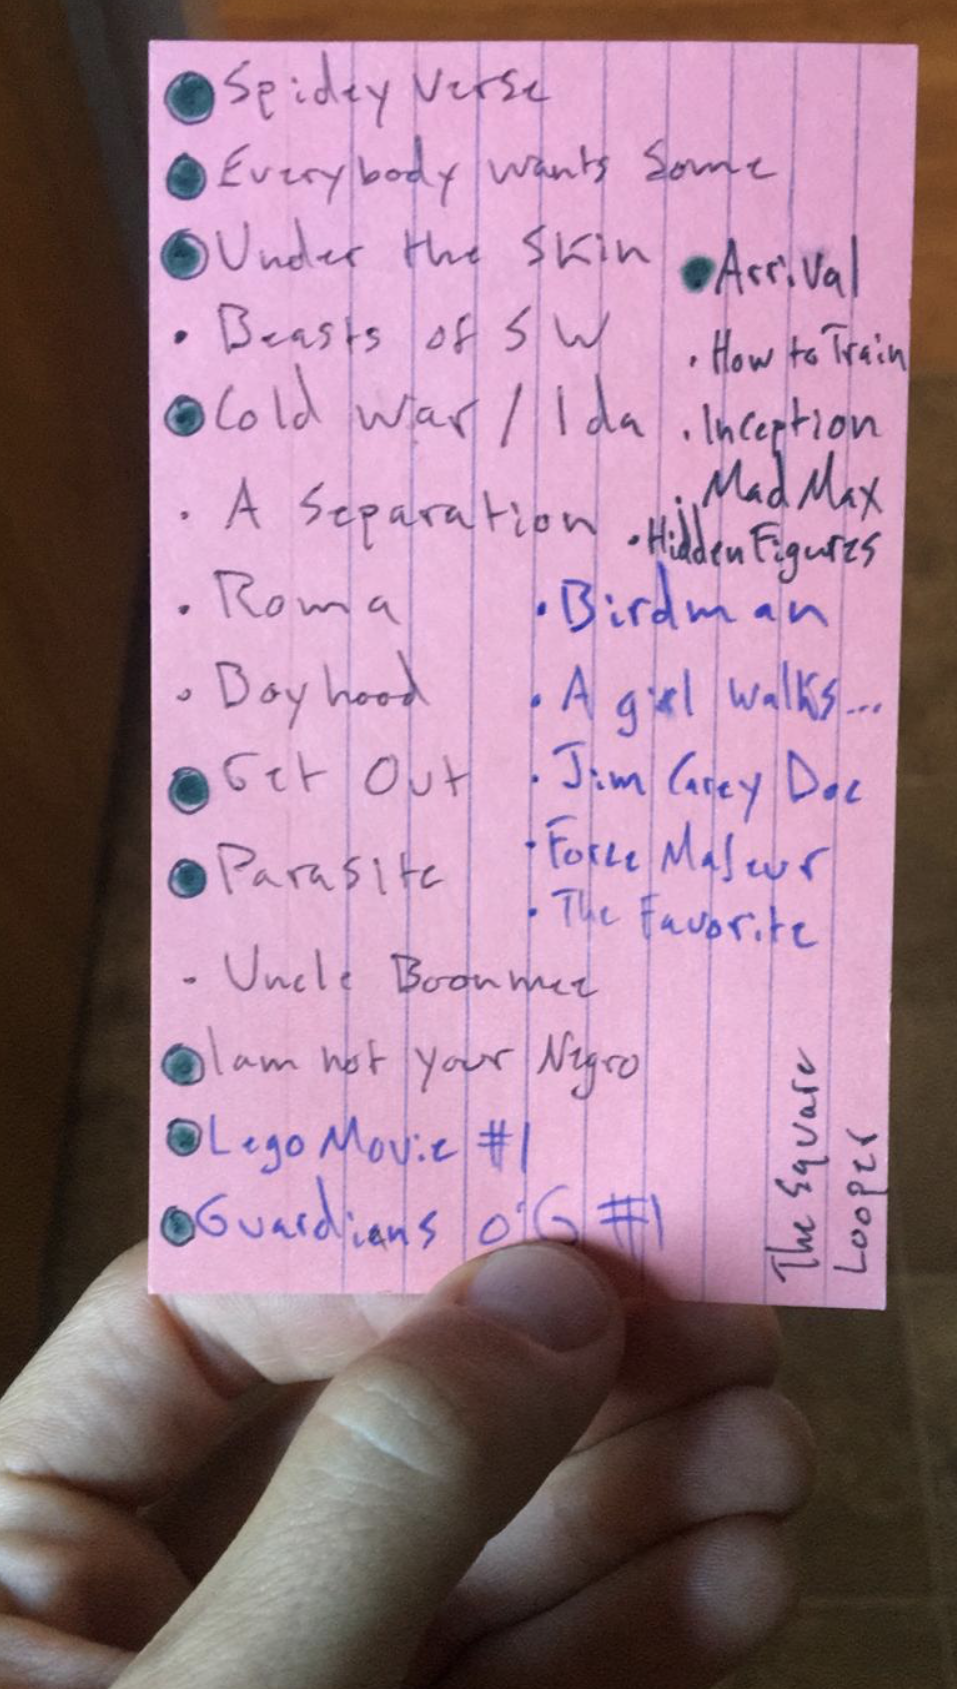 Spidey Verse
Everybody wants Some
Under the Skin
Beasts of SW
Cold War / Ida
A Separation
Roma
Boyhood
Get Out
Parasite
Uncle Boonmee
I am not your Negro
Lego Movie #1
Guardians o'G #1
Arrival
How to Train
Inception
Mad Max
Hidden Figures
Birdman
A girl walks...
Jim Carey Doc
Force Majeur
The Favorite
The Square
Looper